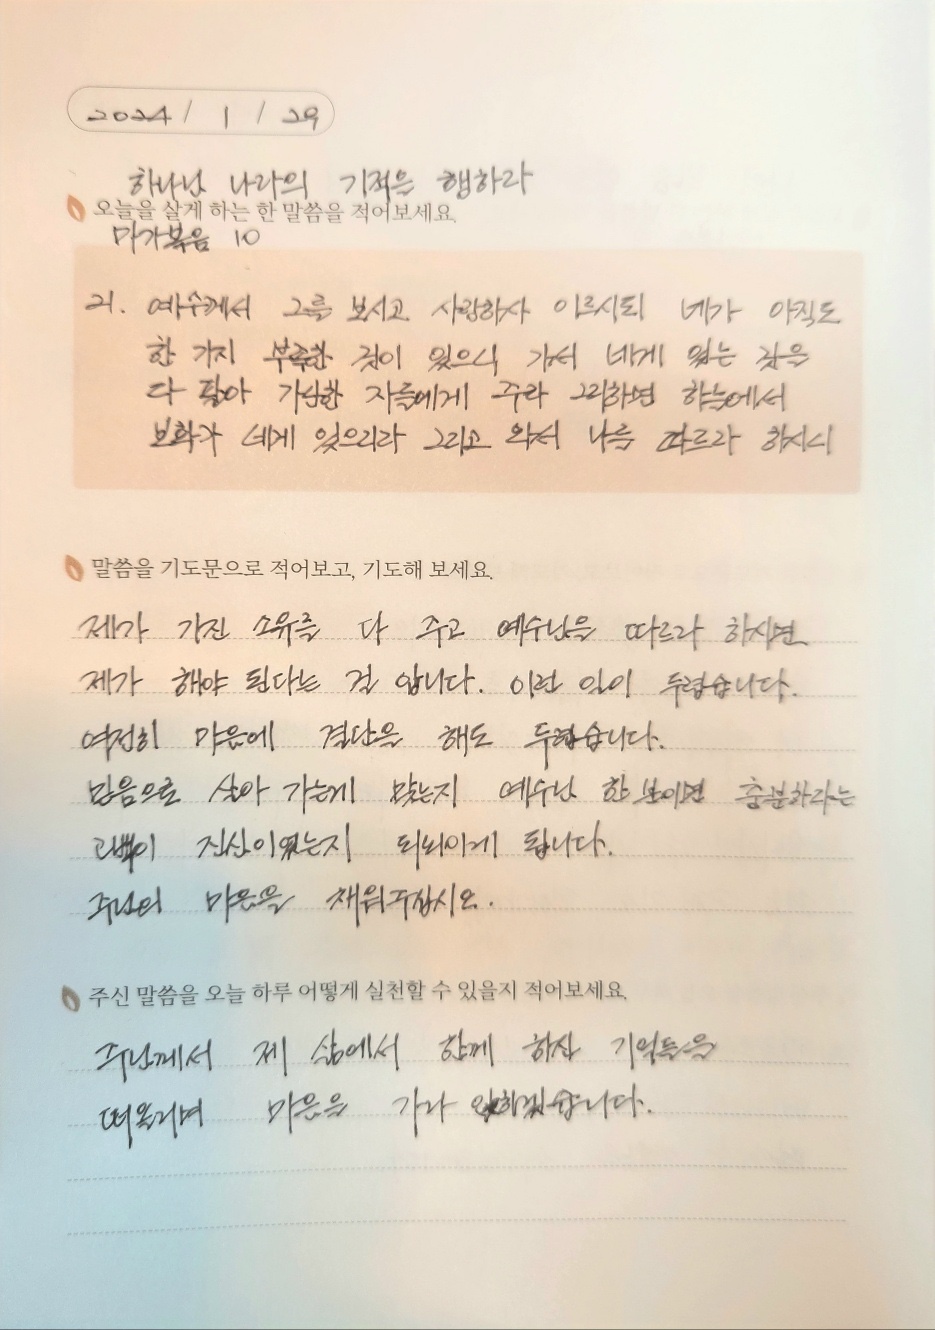 2024 / 1 / 29
하나님 나라의 기적을 행하라
오늘을 살게 하는 한 말씀을 적어보세요.
마가복음 10
21. 예수께서 그를 보시고 사랑하사 이르시되 네가 아직도
한 가지 부족한 것이 있으니 가서 네게 있는 것을
다 팔아 가난한 자들에게 주라 그리하면 하늘에서
보화가 네게 있으리라 그리고 와서 나를 따르라 하시니
말씀을 기도문으로 적어보고, 기도해 보세요.
제가 가진 소유를 다 주고 예수님을 따르라 하시면
제가 해야 된다는 걸 압니다. 이런 일이 두렵습니다.
여전히 마음에 결단을 해도 두렵습니다.
믿음으로 살아 가는게 맞는지 예수님 한 분이면 충분하라는
고백이 진심이었는지 되뇌이게 됩니다.
주님의 마음을 채워주십시오.
주신 말씀을 오늘 하루 어떻게 실천할 수 있을지 적어보세요.
주님께서 제 삶에서 함께 하신 기억들을
떠올리며 마음을 가라 앉히겠습니다.